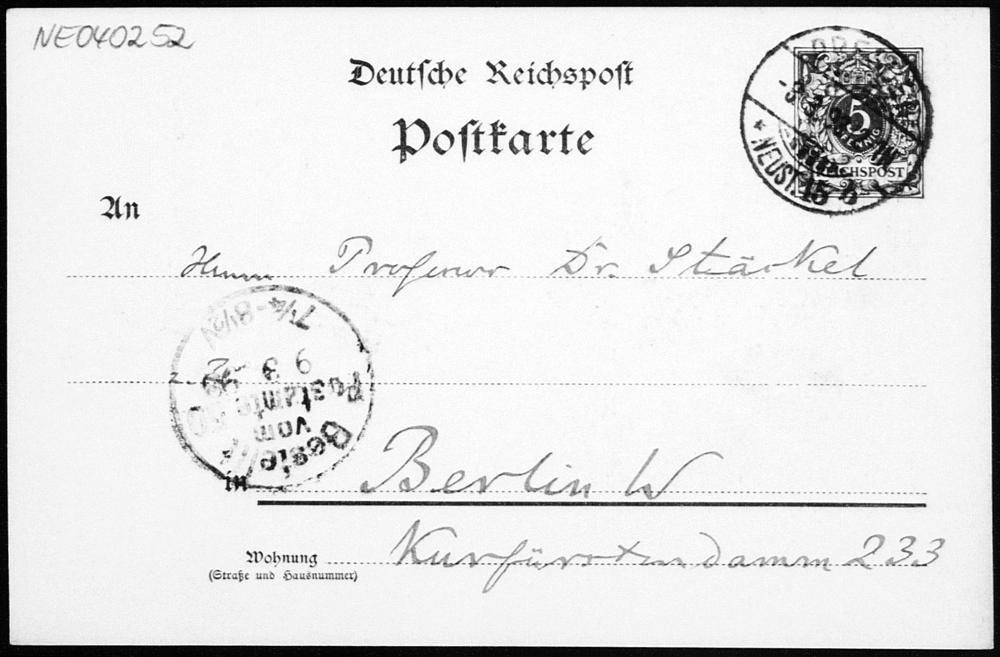 NE040252
Deutsche Reichspost
Postkarte
5
REICHSPOST
* NEUST. 15 b
An
Herrn Professor Dr. Stäckel
7¼-8½ N
9 3
Bestellt
vom
Postamte
in
Berlin W
Wohnung Kurfürstendamm 233
(Straße und Hausnummer)